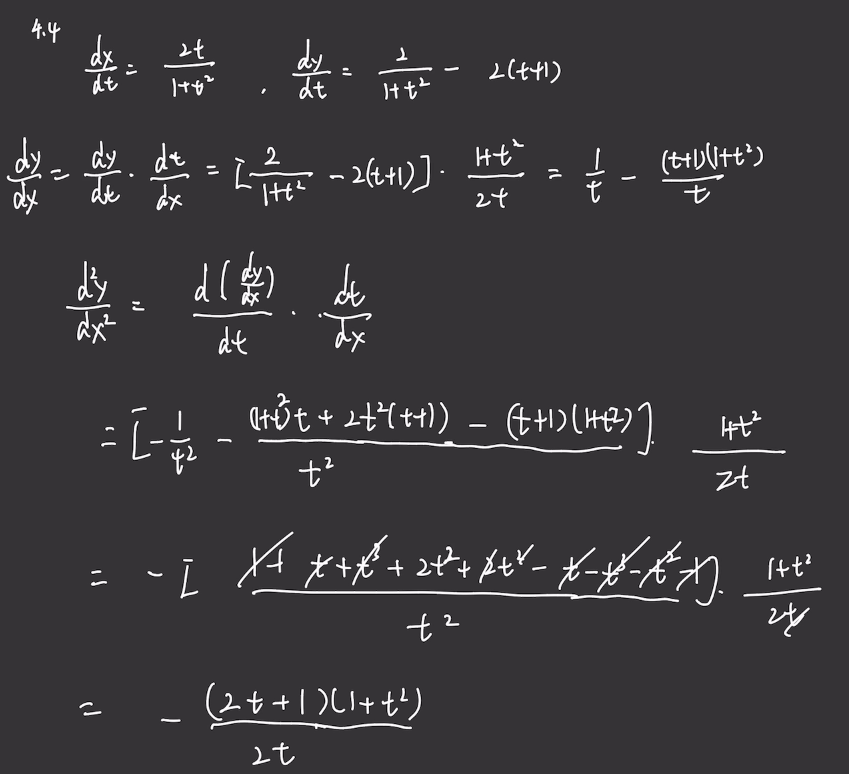 4.4
dx/dt = 2t/(1+t²) , dy/dt = 2/(1+t²) − 2(t+1)
dy/dx = dy/dt · dt/dx = [2/(1+t²) − 2(t+1)] · (1+t²)/2t = 1/t − (t+1)(1+t²)/t
d²y/dx² = d(dy/dx)/dt · · dt/dx
= [−1/t² − ((1+t²)t + 2t²(t+1) − (t+1)(1+t²))/t²] · (1+t²)/2t
= −[(1+t+t³+2t²+2t³−t−t³−t²−1)/t²] · (1+t²)/2t
= −(2t+1)(1+t²)/2t